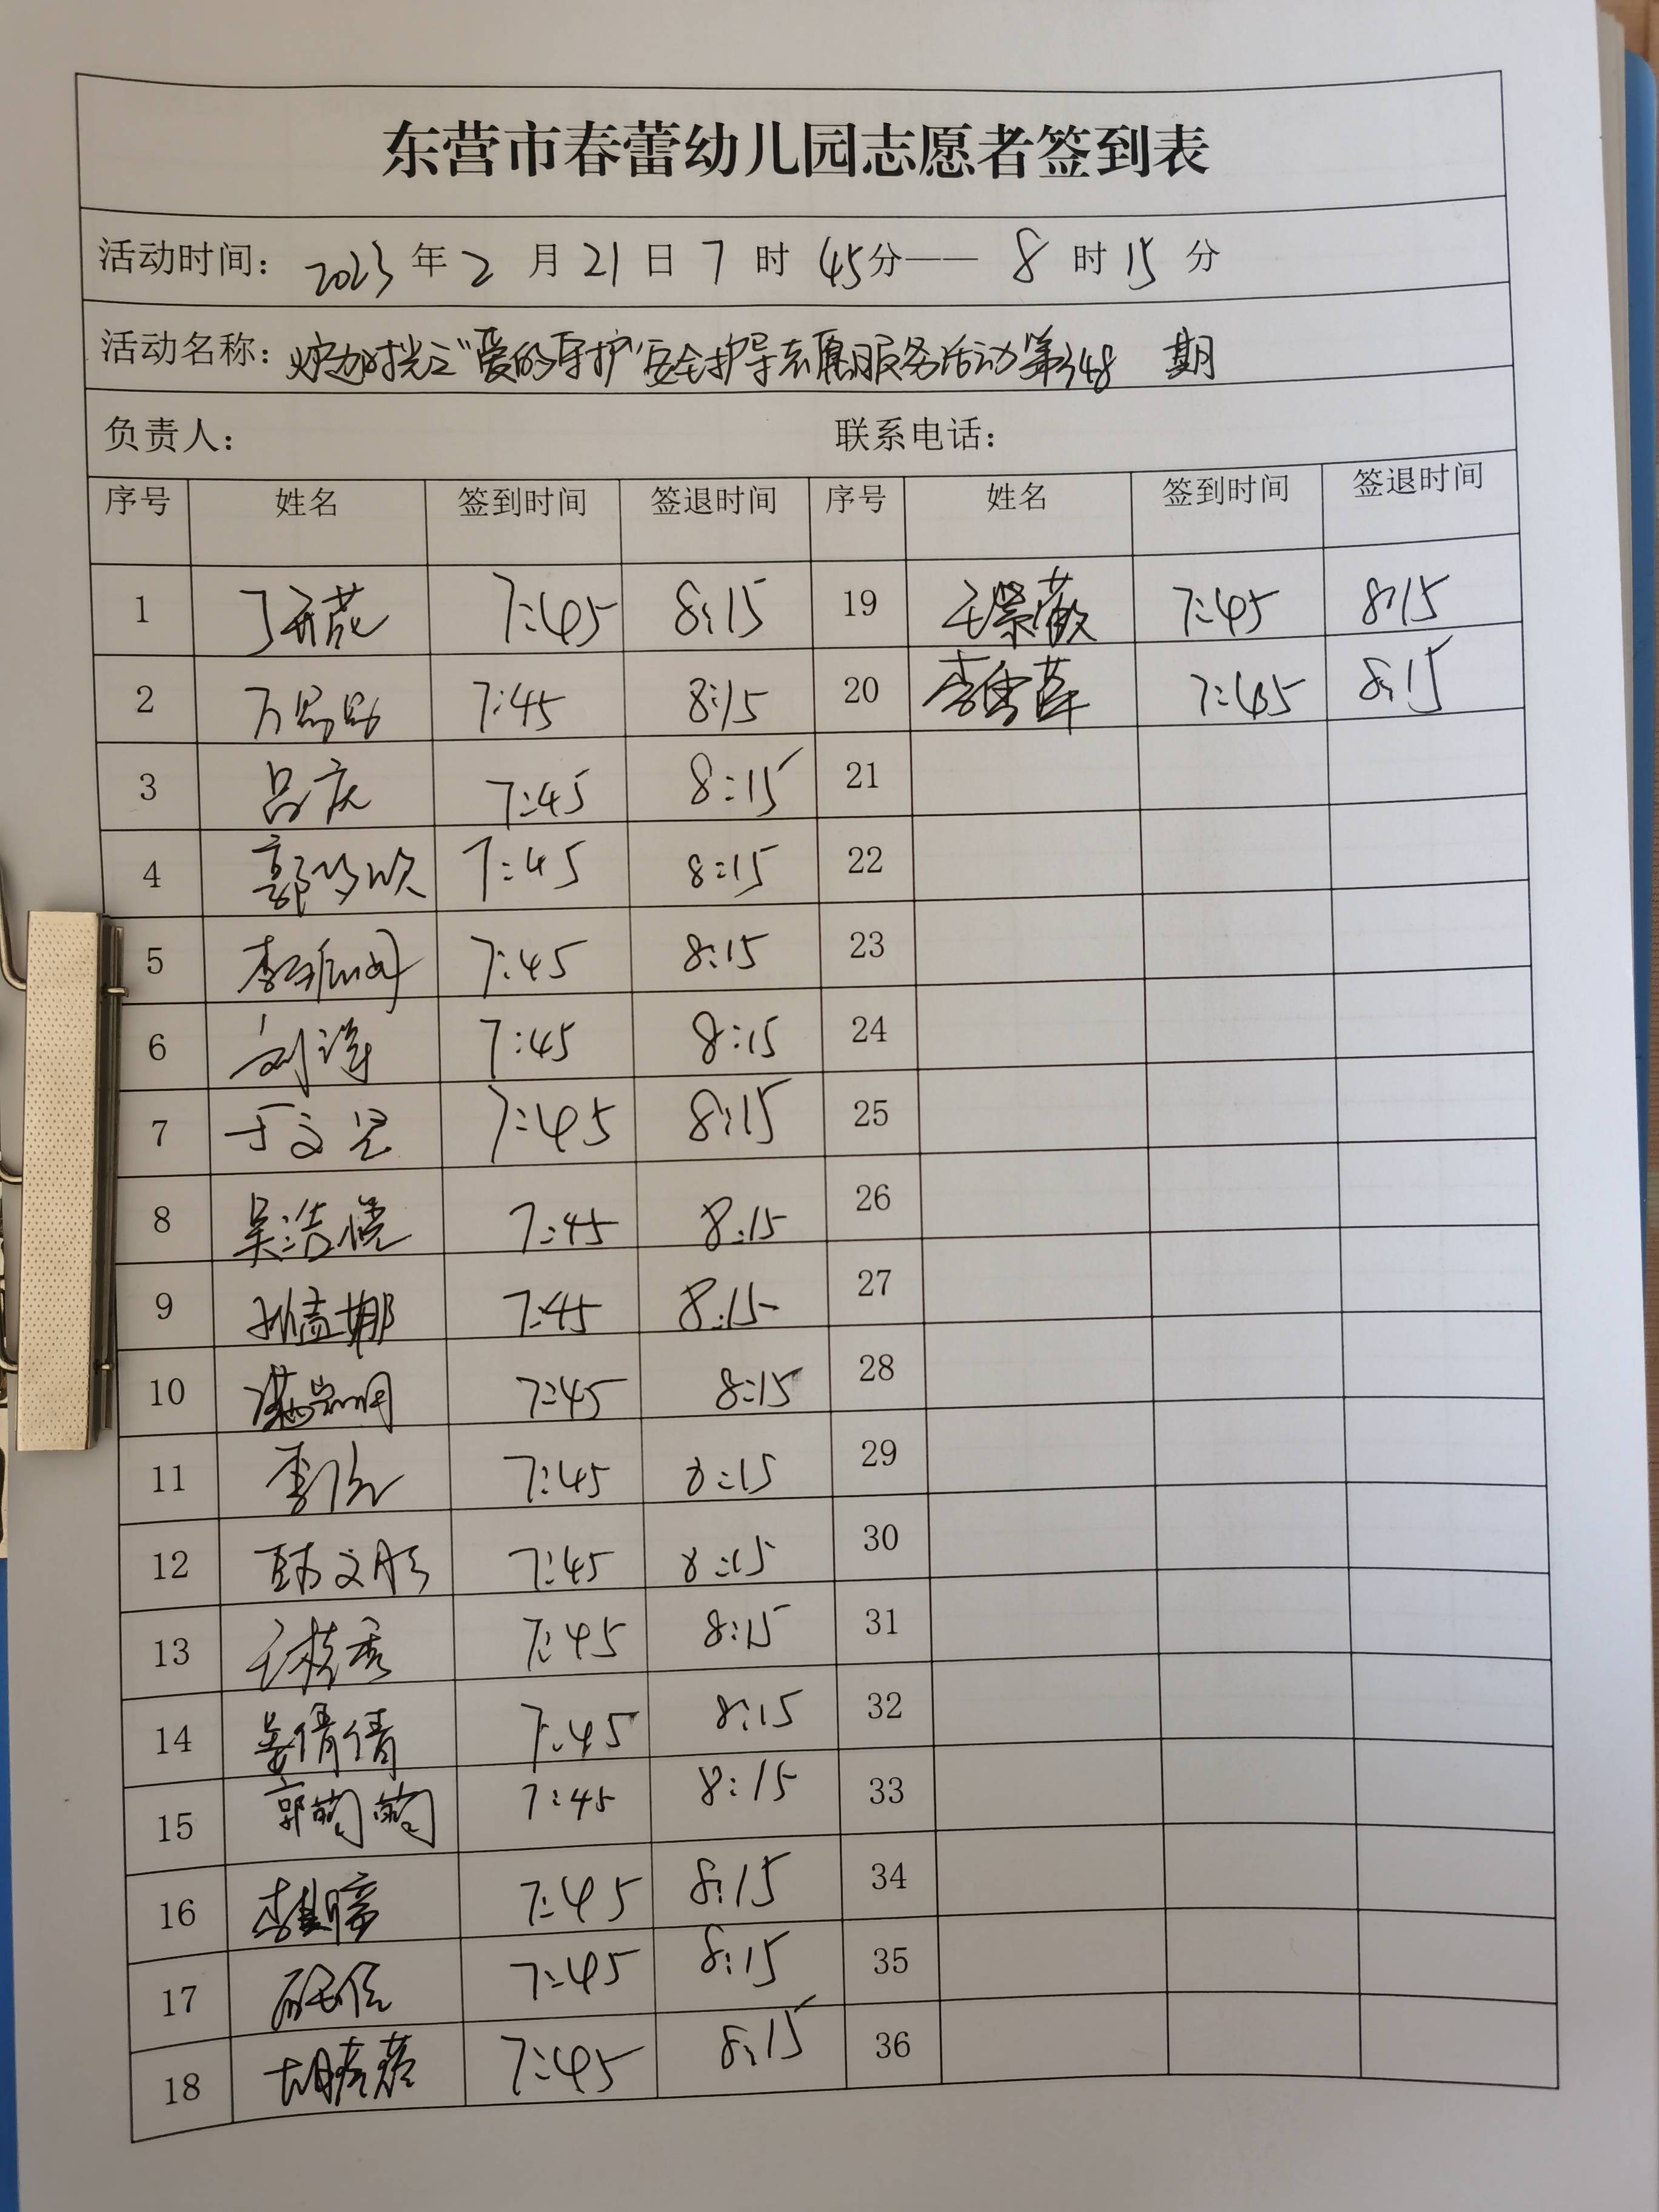 东营市春蕾幼儿园志愿者签到表
活动时间： 2023 年 2 月 21 日 7 时 45 分—— 8 时 15 分
活动名称： 时光之"爱的守护"安全护导志愿服务活动第348 期
负责人： 联系电话：
序号 姓名 签到时间 签退时间 序号 姓名 签到时间 签退时间
1 7:45 8:15 19 王紫薇 7:45 8:15
2 7:45 8:15 20 李雪萍 7:45 8:15
3 吕庆 7:45 8:15 21
4 郭 欣 7:45 8:15 22
5 李 7:45 8:15 23
6 刘 7:45 8:15 24
7 于文 7:45 8:15 25
8 吴浩 7:45 8:15 26
9 孙孟娜 7:45 8:15 27
10 7:45 8:15 28
11 7:45 8:15 29
12 韩文彤 7:45 8:15 30
13 秀 7:45 8:15 31
14 姜倩倩 7:45 8:15 32
15 郭 7:45 8:15 33
16 李 7:45 8:15 34
17 7:45 8:15 35
18 胡 7:45 8:15 36